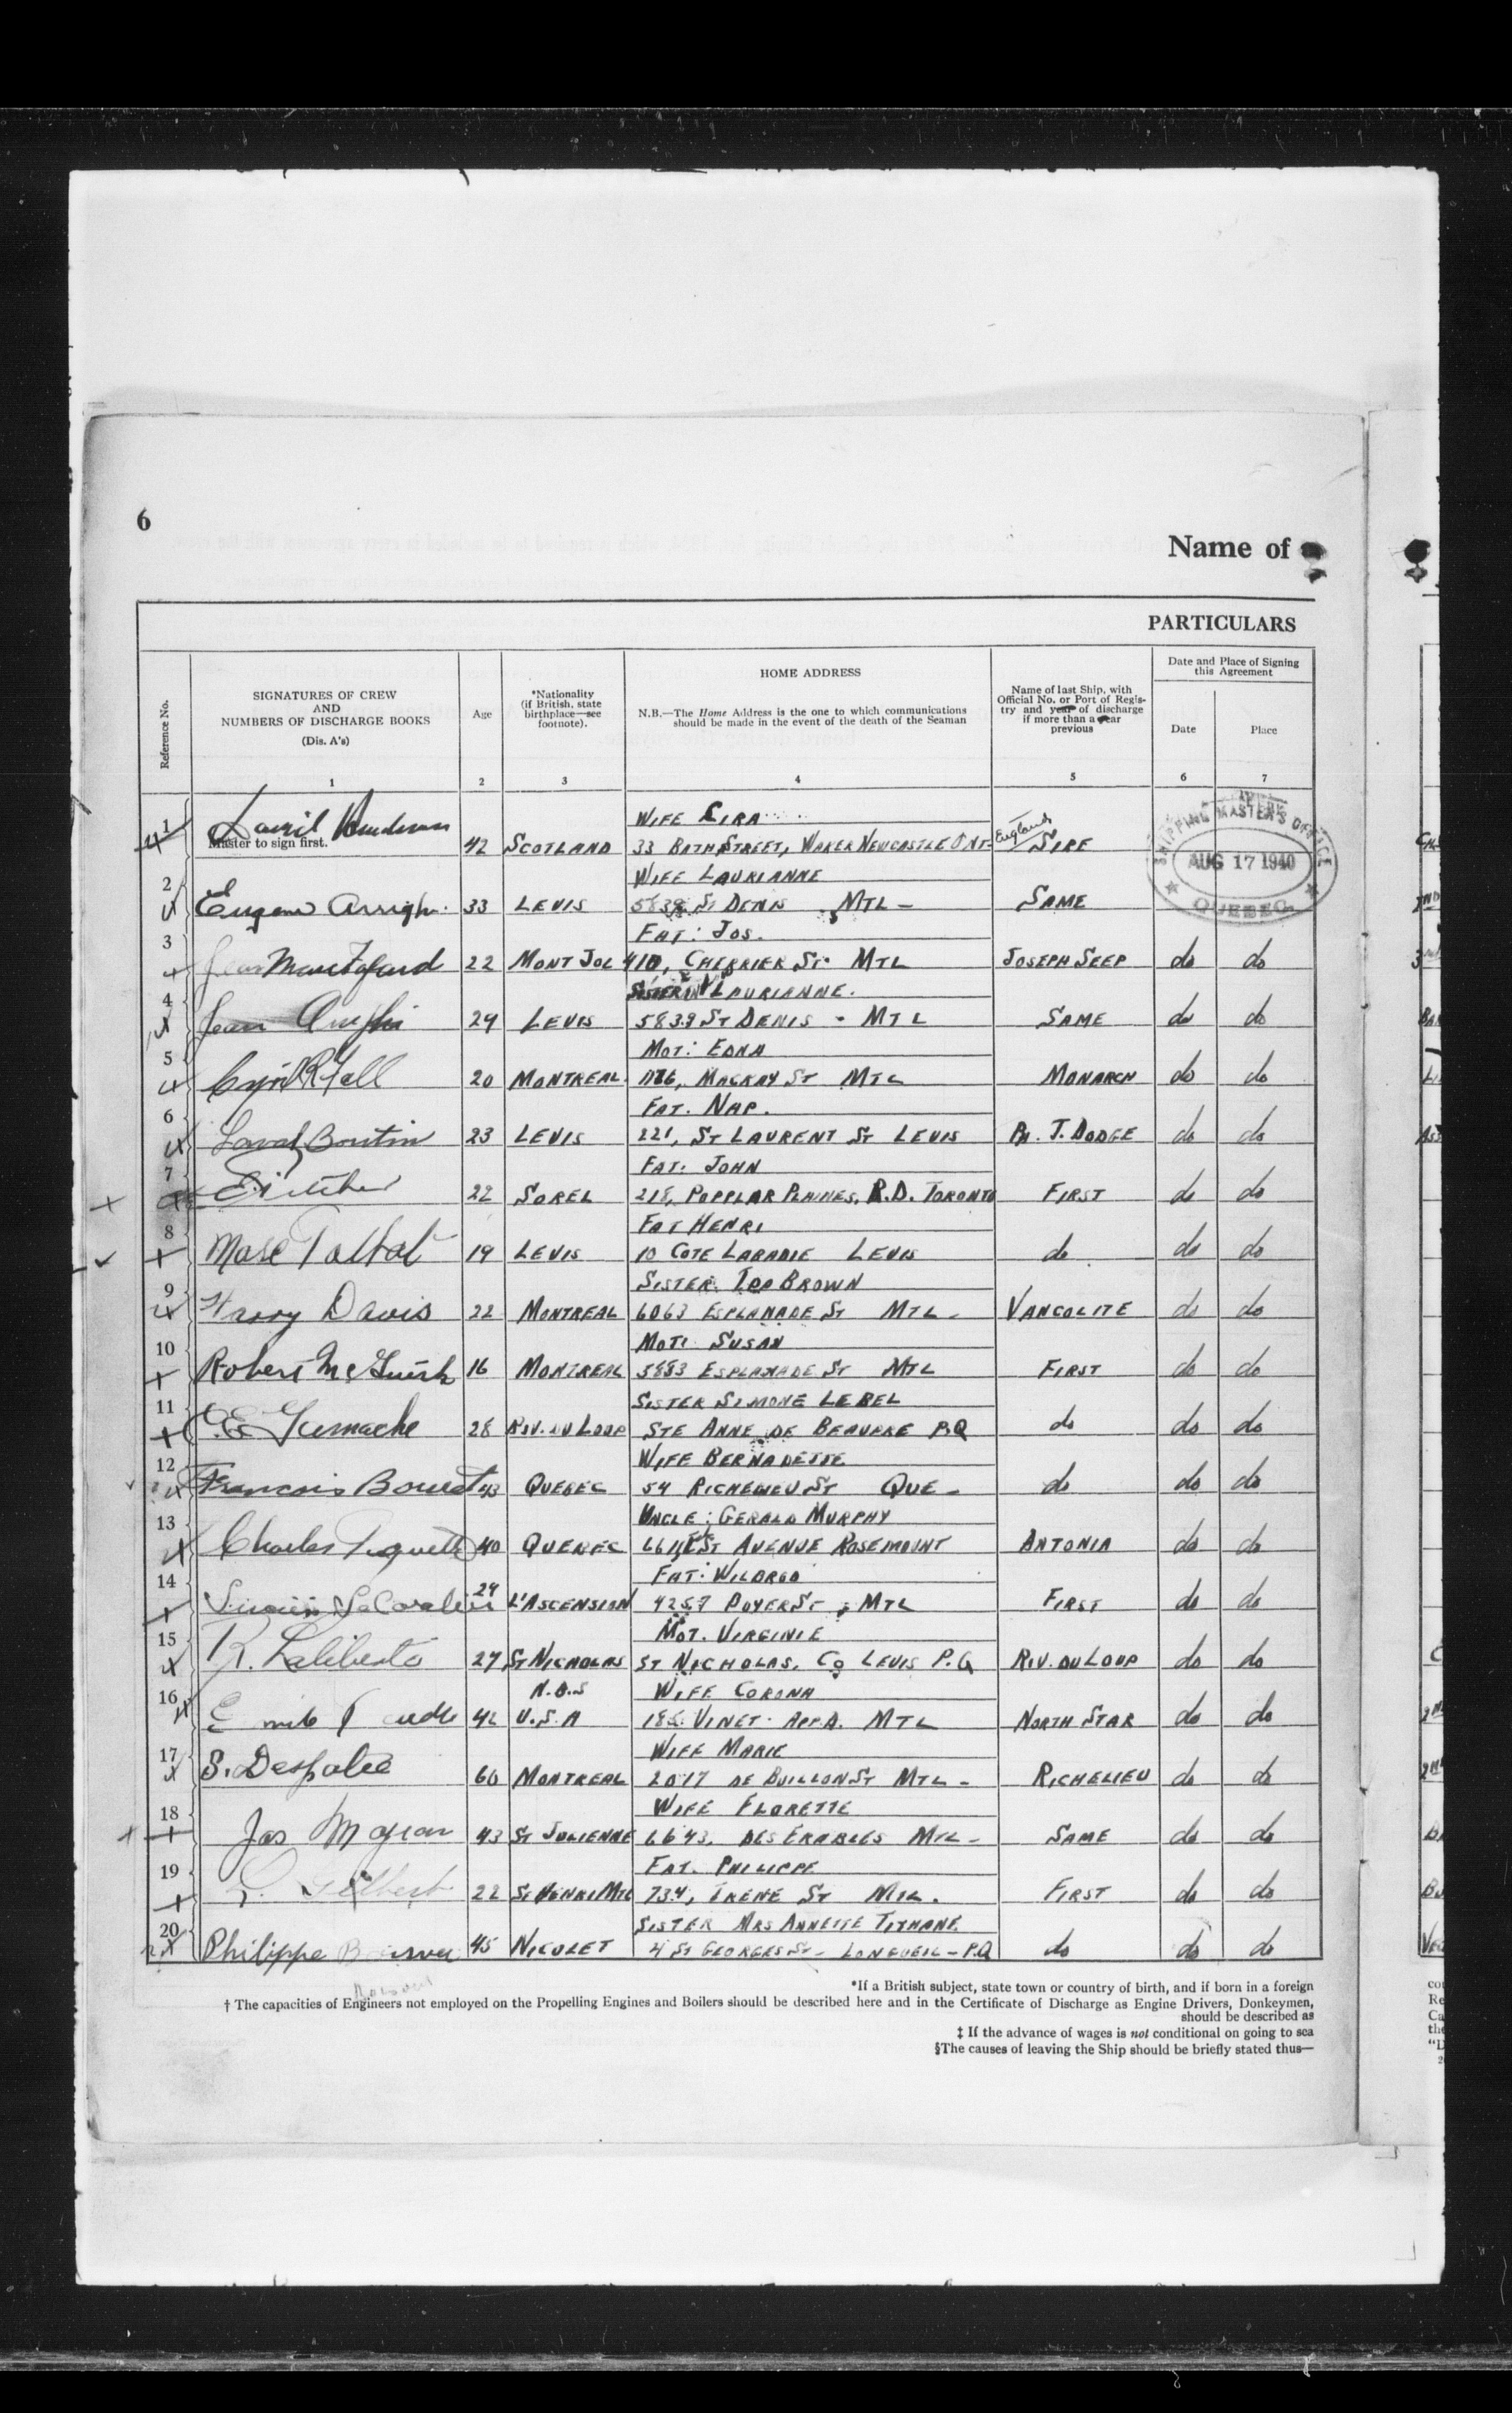 6
Name of
PARTICULARS
Reference No.
SIGNATURES OF CREW
AND
NUMBERS OF DISCHARGE BOOKS
(Dis. A's)
1
Age
2
*Nationality
(if British, state
birthplace—see
footnote).
3
HOME ADDRESS
N.B.—The Home Address is the one to which communications
should be made in the event of the death of the Seaman
4
Name of last Ship, with
Official No. or Port of Regis-
try and year of discharge
if more than a year
previous
5
Date and Place of Signing
this Agreement
Date
6
Place
7
SHIPPING MASTER'S OFFICE
AUG 17 1940
QUEBEC
1 WIFE
Master to sign first. 42 SCOTLAND 33 BATH STREET, NEWCASTLE ONT England
2 WIFE LAURIANNE
Eugene Arrighi 33 LEVIS 5838 St DENIS MTL - SAME
3 FAT: JOS.
22 MONT JOL 410, CHERRIER St. MTL JOSEPH SEEP do do
4 SISTER IN LAURIANNE.
Jean 29 LEVIS 5838 St DENIS - MTL SAME do do
5 MOT: EDNA
Cyril R Fell 20 MONTREAL MACKAY ST MTL MONARCH do do
6 FAT. NAP.
Laval Boutin 23 LEVIS 221, ST LAURENT ST LEVIS J. DODGE do do
7 FAT: JOHN
22 SOREL 218, POPPLAR R.D. TORONTO FIRST do do
8 FAT HENRI
Talbot 19 LEVIS 10 COTE LABADIE LEVIS do do do
9 SISTER. BROWN
Harry Davis 22 MONTREAL 6063 ESPLANADE St MTL - VANCOLITE do do
10 MOT: SUSAN
Robert McGuirk 16 MONTREAL 5883 ESPLANADE St MTL FIRST do do
11 SISTER SIMONE LEBEL
Gamache 28 RIV. DU LOUP STE ANNE DE BEAUPRE P.Q do do do
12 WIFE BERNADETTE
Francois 43 QUEBEC 54 RICHELIEU ST QUE - do do do
13 UNCLE: GERALD MURPHY
Charles 40 QUEBEC AVENUE ROSEMOUNT ANTONIA do do
14 FAT:
29 L'ASCENSION 4257 ST, MTL FIRST do do
15 MOT. VIRGINIE
R. Laliberté 27 ST NICHOLAS ST NICHOLAS, Co LEVIS P.Q RIV. DU LOUP do do
16 WIFE CORONA
42 U.S.A VINET APP A. MTL NORTH STAR do do
17 WIFE MARIE
S. Despatie 60 MONTREAL 2017 DE BULLION ST MTL - RICHELIEU do do
18 WIFE FLORETTE
Jas 43 St JULIENNE 6643, DES ERABLES MTL - SAME do do
19 FAT. PHILIPPE
22 St HENRI MTL 734, IRENE ST MTL. FIRST do do
20 SISTER MRS ANNETTE
Philippe 45 NICOLET 4 St GEORGES St - LONGUEIL - P.Q do do do
*If a British subject, state town or country of birth, and if born in a foreign
† The capacities of Engineers not employed on the Propelling Engines and Boilers should be described here and in the Certificate of Discharge as Engine Drivers, Donkeymen,
should be described as
‡ If the advance of wages is not conditional on going to sea
§The causes of leaving the Ship should be briefly stated thus—